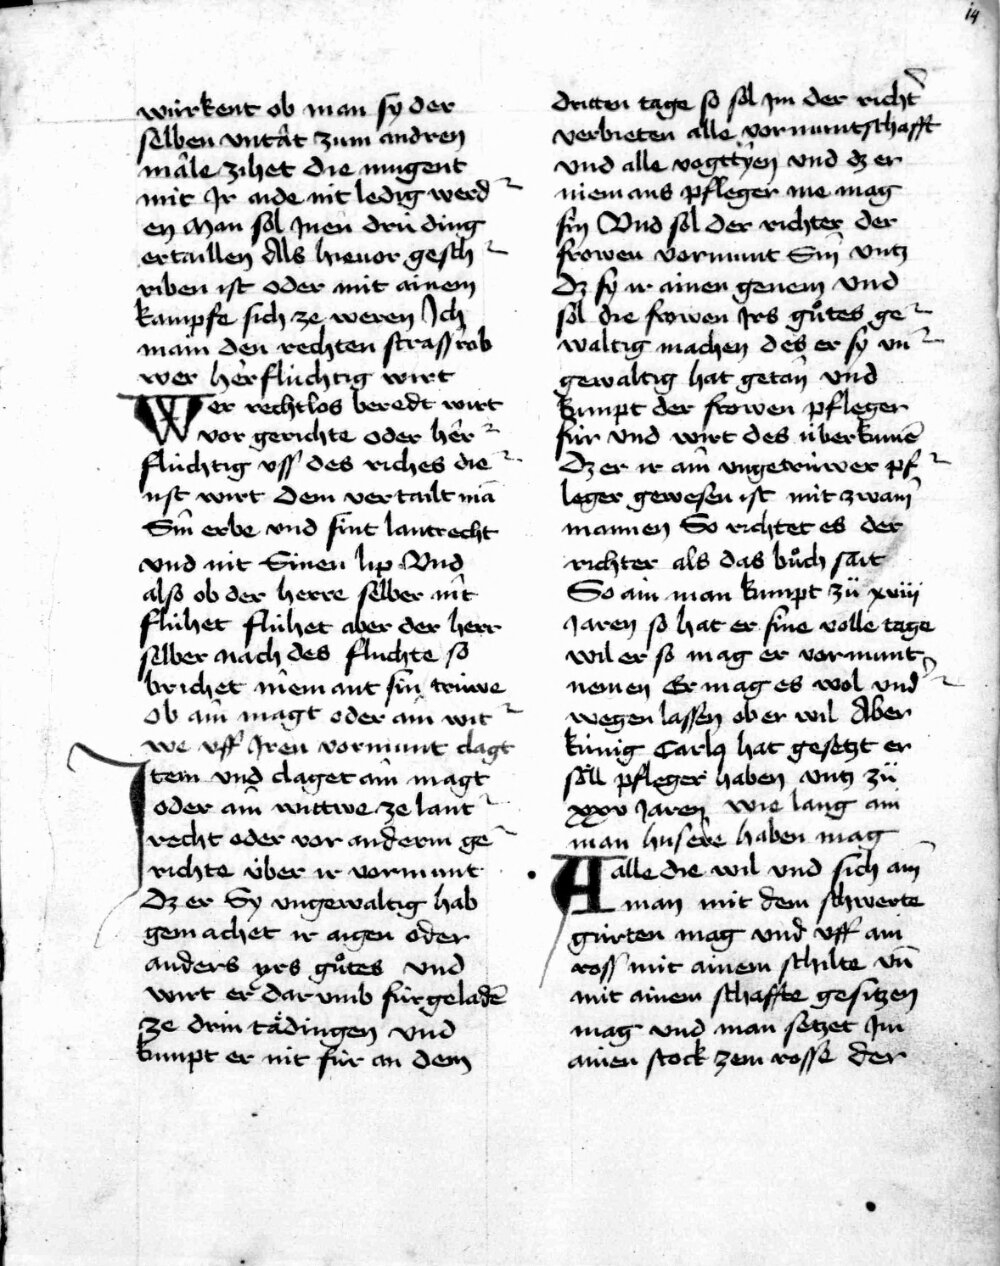 14
würkent ob man sÿ der
selben vntât zum andren
mâle zihet die mugent
mit Jr aide nit ledig werd
en Man sol Jnen drü ding
ertaillen Als hieuor gesch
riben ist oder mit ainem
kampfe sich ze weren Jch
main den rechten strassrob
wer herflüchtig wirt
Wer rechtlos beredt wirt
vor gerichte oder her
flüchtig vss des riches die
nst wirt dem vertailt mā
Sin erbe vnd sint lantrecht
vnd nit Sinen lip Vnd
also ob der herre selber nit
flühet flühet aber der herr
selber nach des fluchte so
brichet niemant sin trüwe
ob ain magt oder ain wit
we vff Jren vormunt clagt
Jtem vnd claget ain magt
oder ain wittwe ze lant
recht oder vor anderm ge
richte über ir vormunt
Dz er Sy vngewaltig hab
gemachet ir aigen oder
anders yrs gůtes vnd
wirt er dar vmb fürgeladē
ze drin tädingen vnd
kumpt er nit für an dem
dritten tage so sol Jm der richt
verbieten alle vormuntschafft
vnd alle vogttÿen vnd dz er
niemans pfleger me mag
sin Vnd sol der richter der
frowen vormunt Sin vntz
Dz sy ir ainen genem vnd
sol die frowen Jrs gůtes ge
waltig machen des er sy vn
gewaltig hat getān vnd
kumpt der frowen pfleger
für vnd wirt des überkumē
Dz er ir ain vngetrüwer pf
leger gewesen ist mit zwain
mannen So richtet es der
richter als das bůch sait
So ain man kumpt zü xviij
Jaren so hat er sine volle tage
wil er so mag er vormunt
nemen Er mag es wol vnd
wegen lassen ob er wil Aber
künig Carlꝰ hat gesetzt er
söll pfleger haben vntz zü
xxv Jaren wie lang ain
man husere haben mag
Aalle die wil vnd sich ain
man mit dem schwerte
gürten mag vnd vff ain
ross mit ainem schilte vn̄
mit ainem schaffte gesitzen
mag vnd man setzet Jm
ainen stock zem rosse der